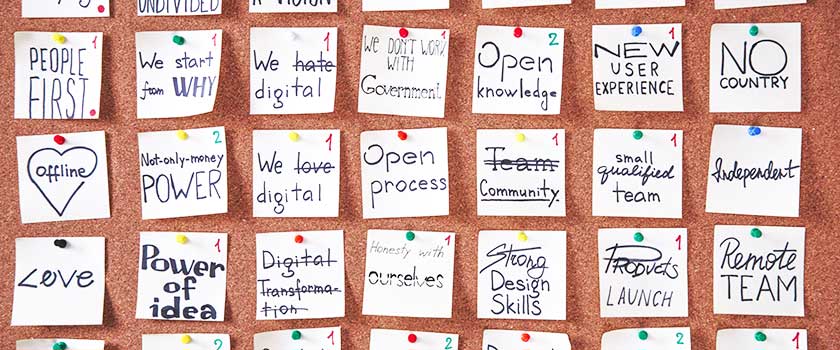 UNDIVIDED
1
PEOPLE
FIRST
1
We start
from WHY
1
We hate
digital
1
WE DON'T WORK
WITH
Government
2
Open
knowledge
1
NEW
USER
EXPERIENCE
NO
COUNTRY
offline
2
Not-only-money
POWER
1
We love
digital
Open
process
2
Team
Community
1
small
qualified
team
Independent
LOVE
1
Power
of
idea
1
Digital
Transforma-
tion
1
Honesty with
ourselves
Strong
Design
Skills
1
PRODUCTS
LAUNCH
Remote
TEAM
2
1
2
2
2